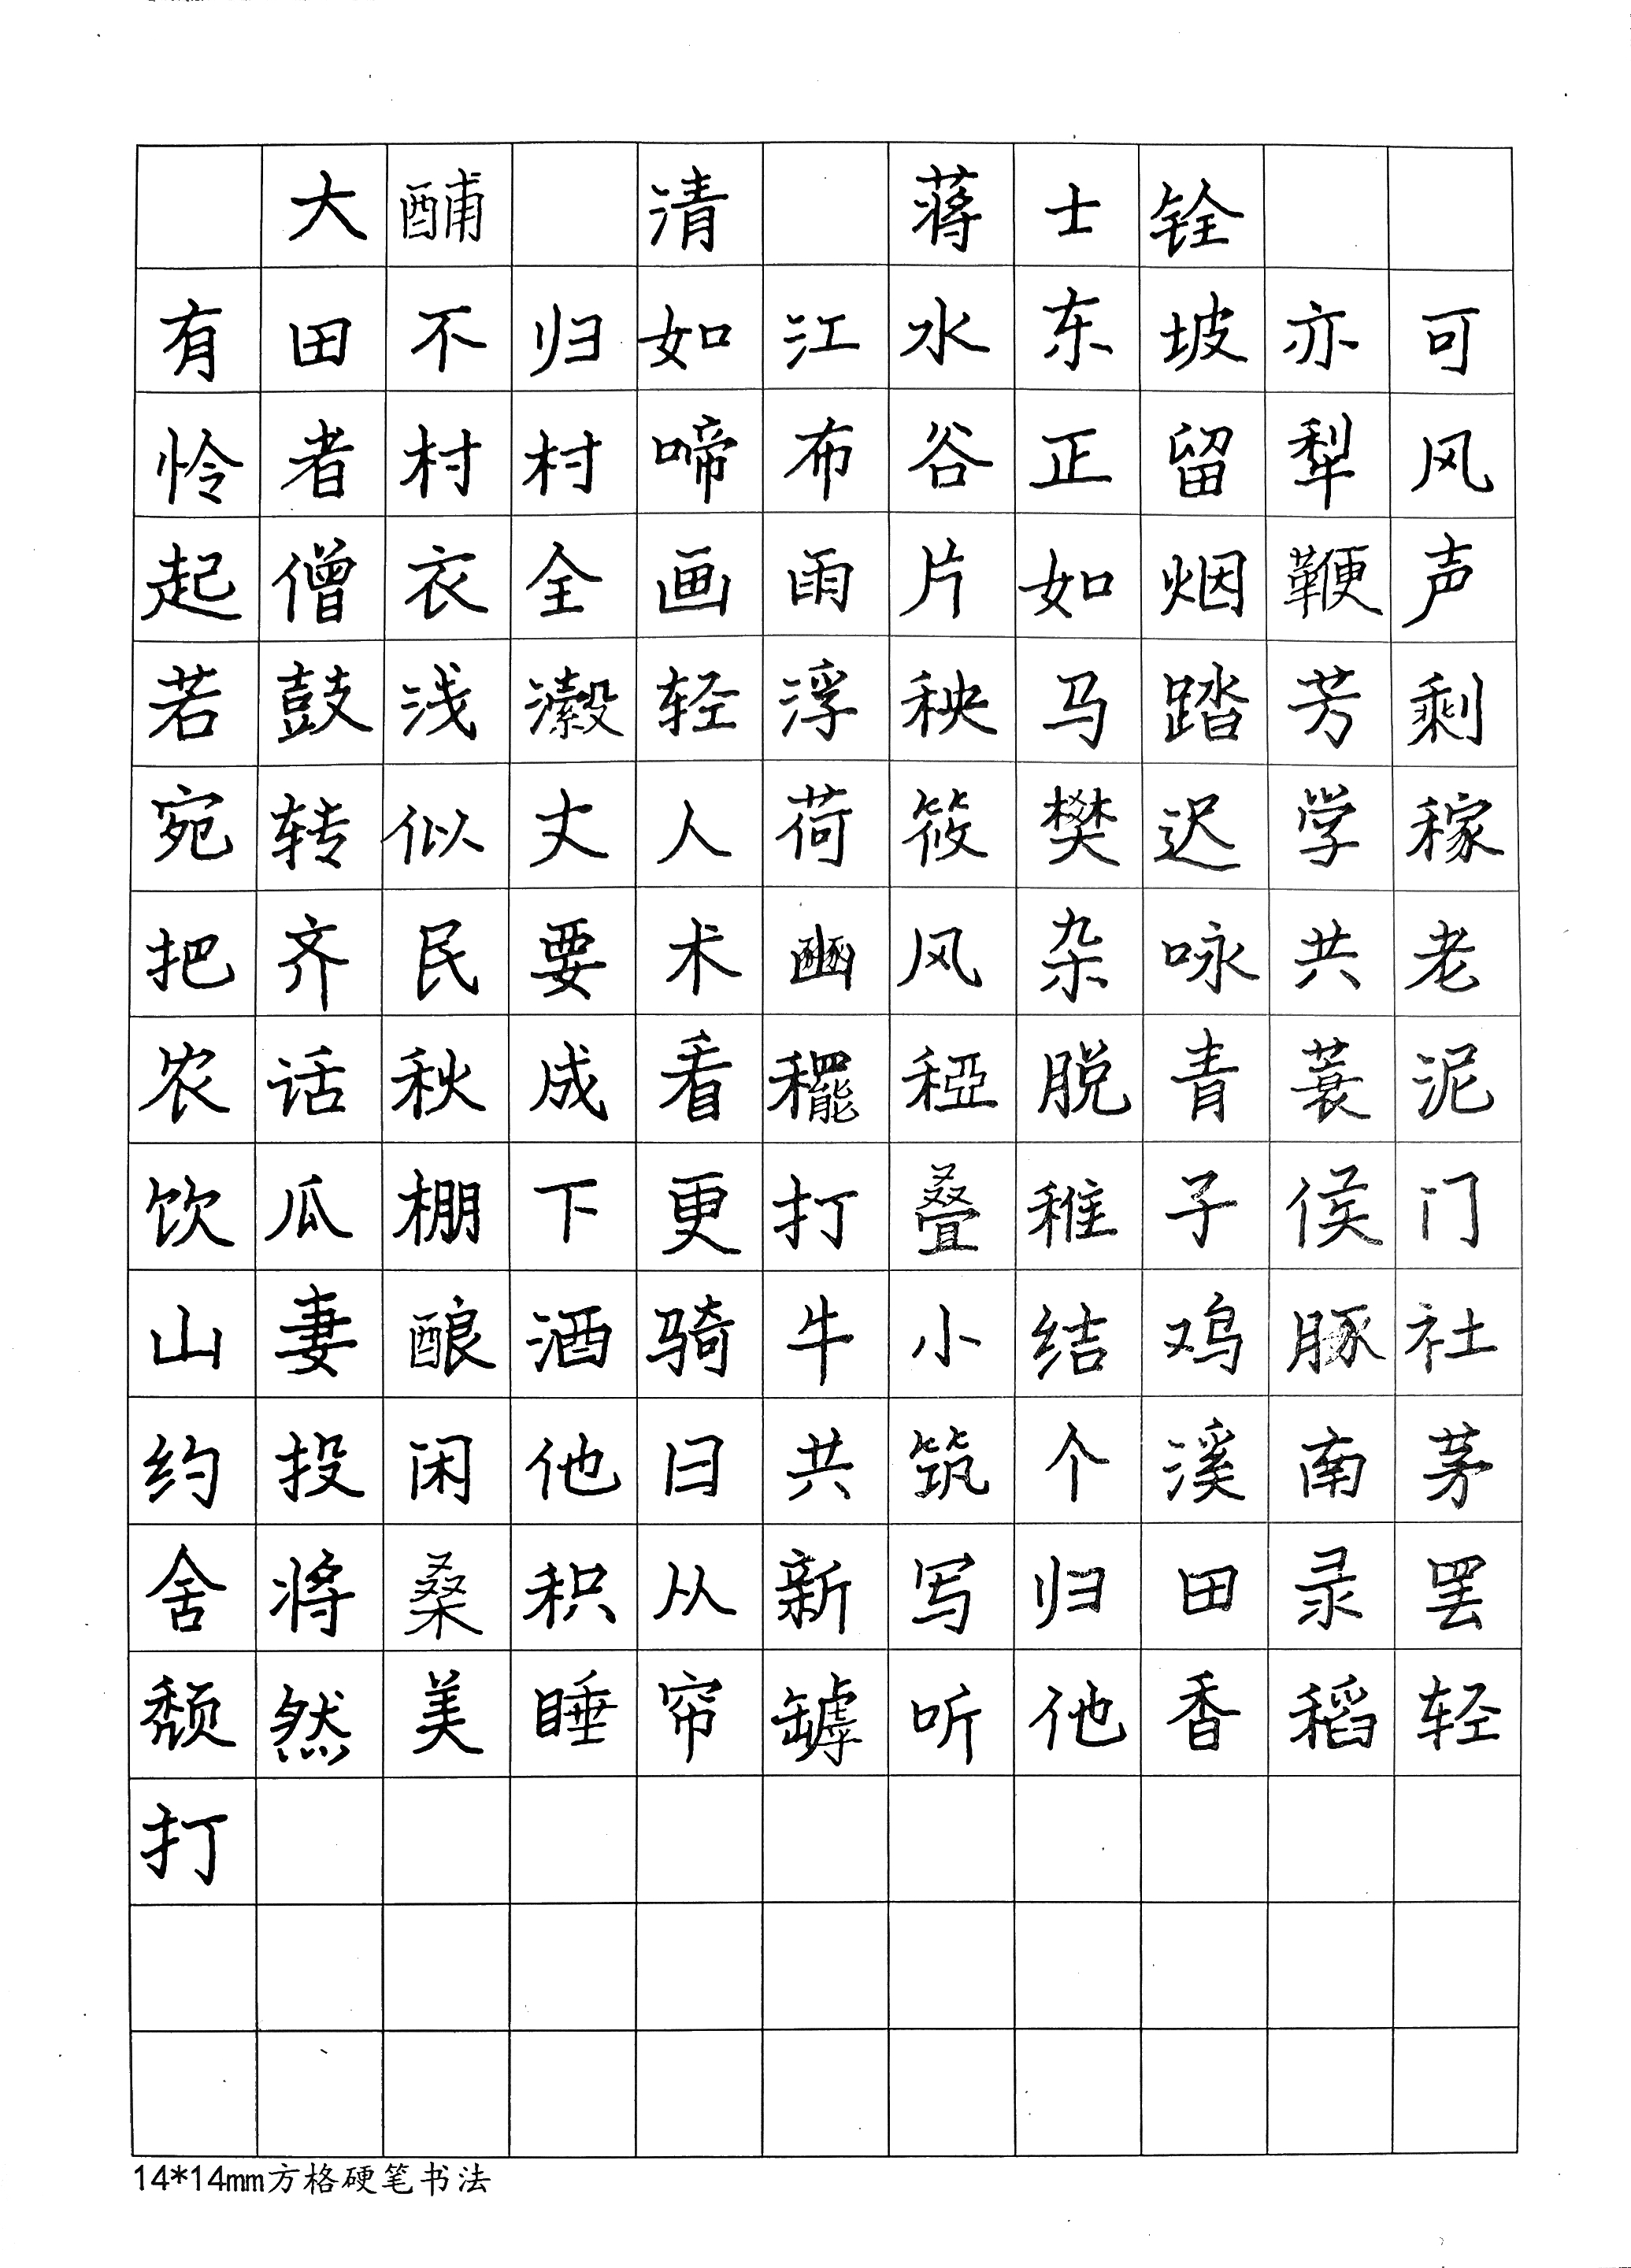 大酺 清 蒋士铨
有田不归如江水东坡亦可
怜者村村啼布谷正留犁风
起僧衣全画雨片如烟鞭声
若鼓浅濲轻浮秧马踏芳剩
宛转似丈人荷筱樊迟学稼
把齐民要术豳风杂咏共老
农话秋成看䆉稏脱青蓑泥
饮瓜棚下更打叠稚子侯门
山妻酿酒骑牛小结鸡豚社
约投闲他日共筑个溪南茅
舍将桑积从新写归田录罢
颓然美睡帘罅听他香稻轻
打
14*14mm方格硬笔书法